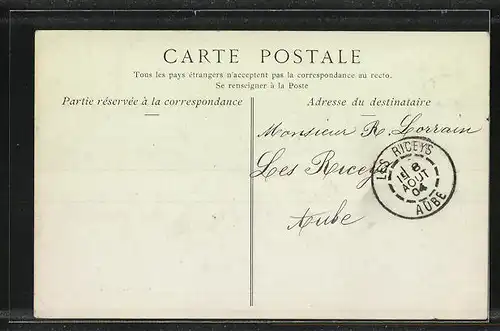 CARTE POSTALE
Tous les pays étrangers n'acceptent pas la correspondance au recto.
Se renseigner à la Poste
Partie réservée à la correspondance
Adresse du destinataire
Monsieur R. Lorrain
Les Riceys
Aube
LES RICEYS
8
AOUT
04
AUBE